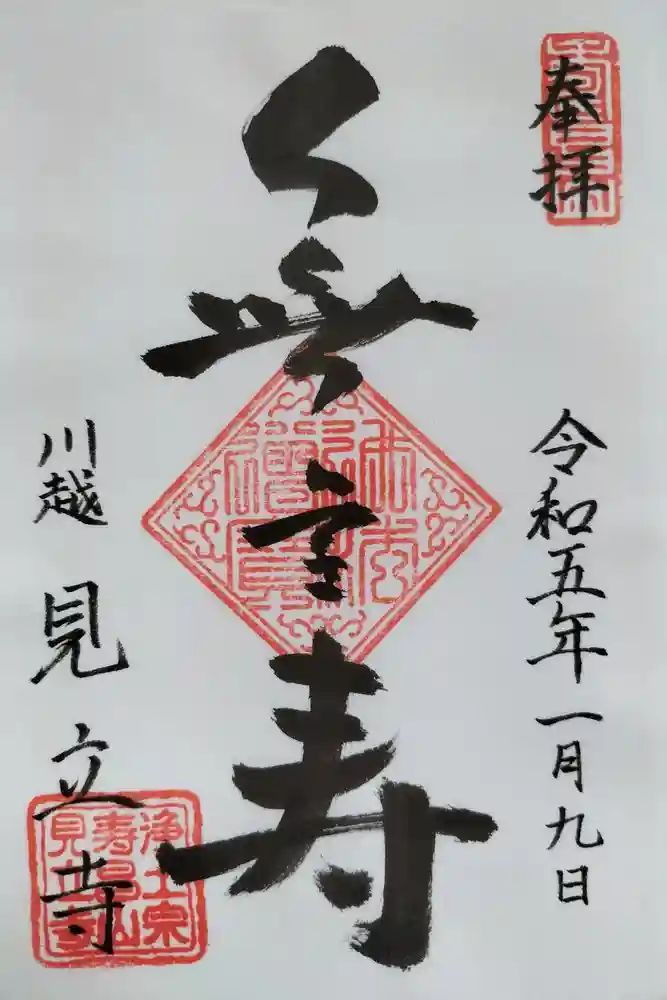 奉拝
令和五年一月九日
無量寿
川越 見立寺
浄土宗
寿昌山
見立寺